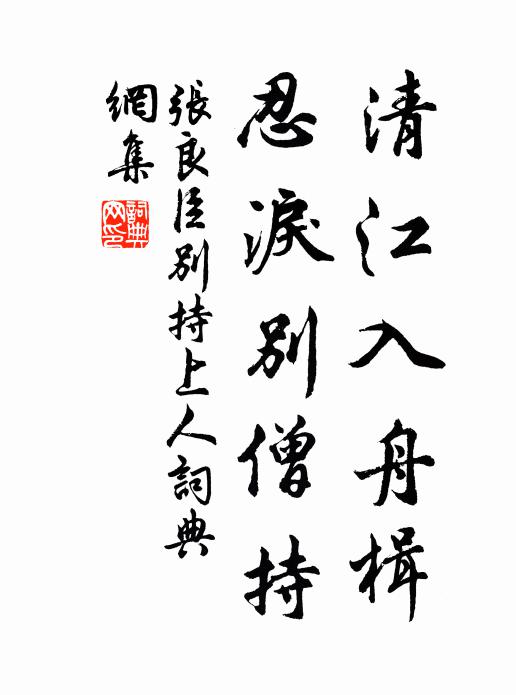 清江入舟楫
忍淚別僧持
張良臣別持上人詞典
網集
詞典
网印